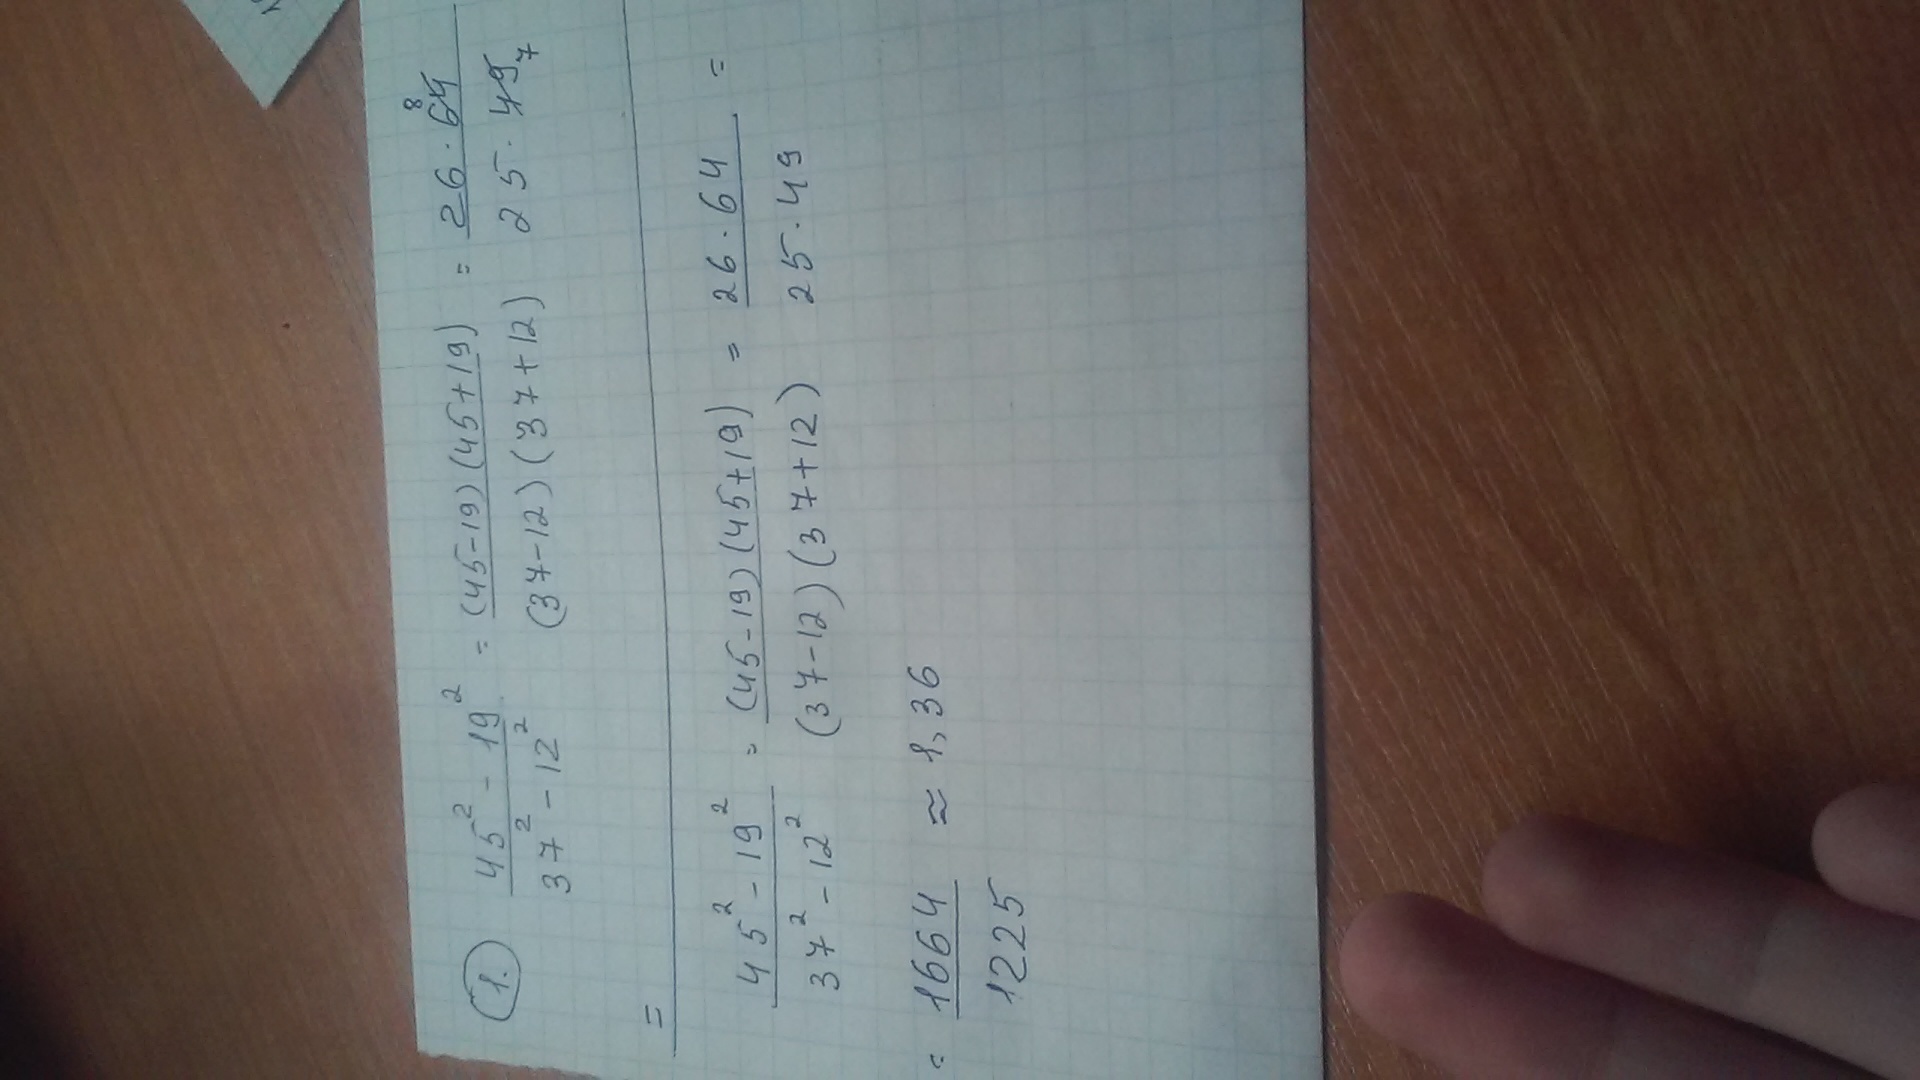 1. (45² - 19²)/(37² - 12²) = ((45-19)(45+19))/((37-12)(37+12)) = (26 · 64 8)/(25 · 49 7)
=
(45² - 19²)/(37² - 12²) = ((45-19)(45+19))/((37-12)(37+12)) = (26 · 64)/(25 · 49) =
= 1664/1225 ≈ 1,36